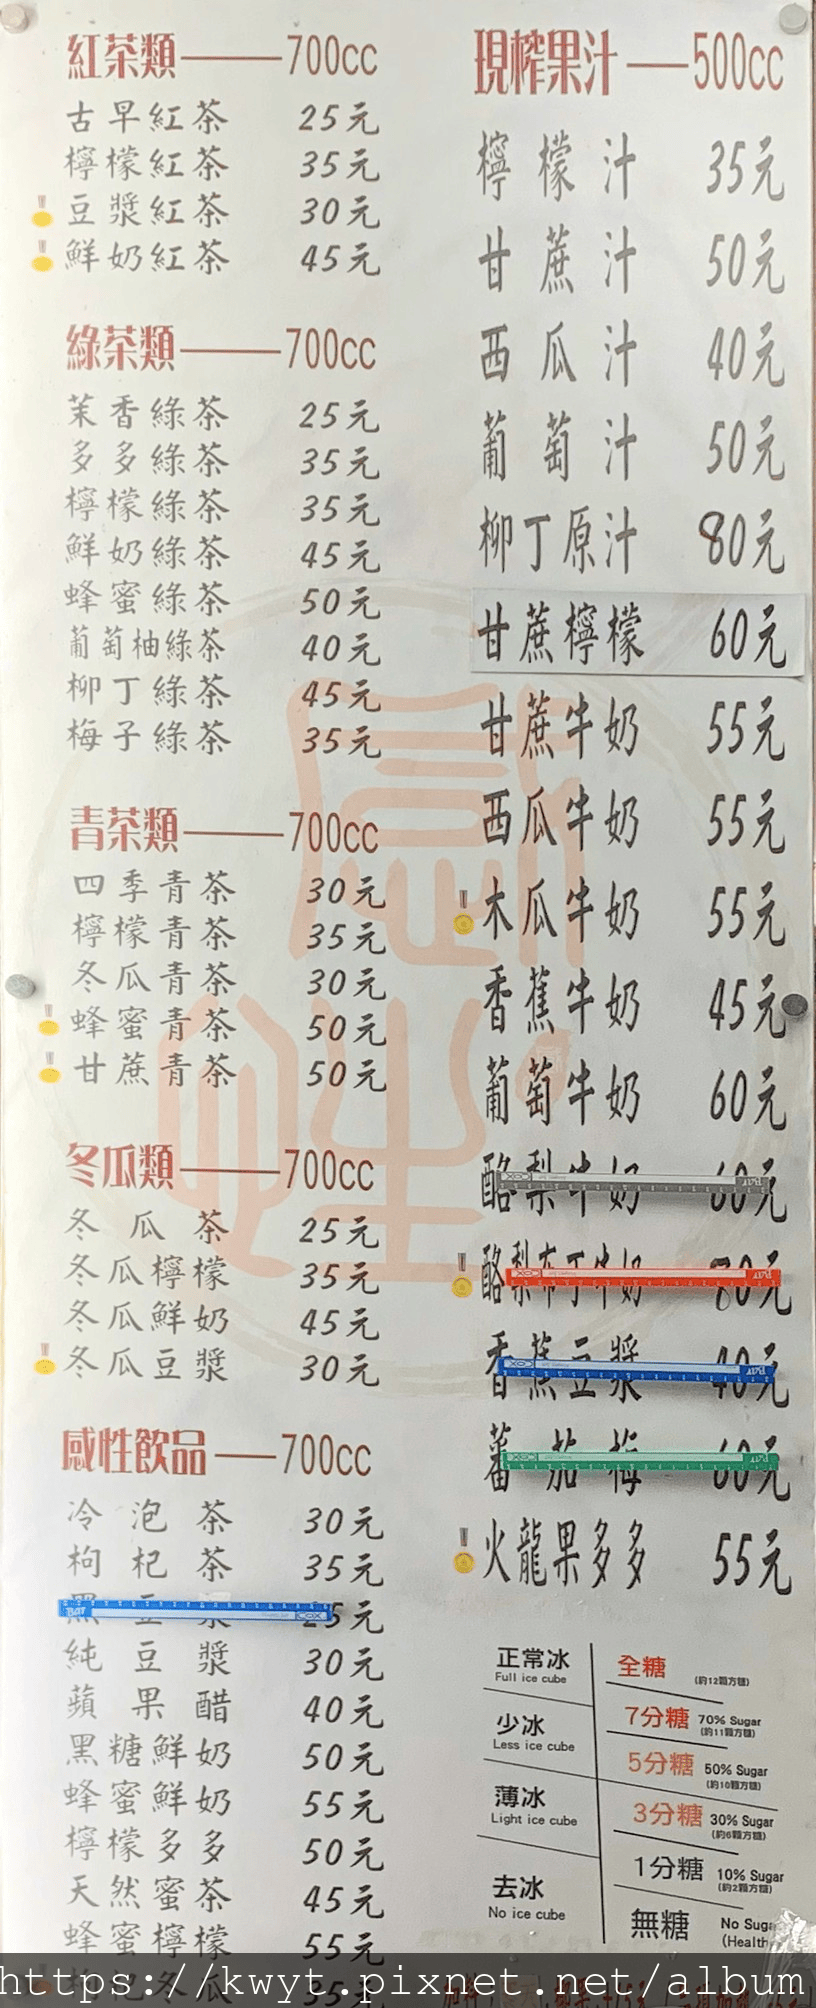 紅茶類——700cc
古早紅茶 25元
檸檬紅茶 35元
豆漿紅茶 30元
鮮奶紅茶 45元
綠茶類——700cc
茉香綠茶 25元
多多綠茶 35元
檸檬綠茶 35元
鮮奶綠茶 45元
蜂蜜綠茶 50元
葡萄柚綠茶 40元
柳丁綠茶 45元
梅子綠茶 35元
青茶類——700cc
四季青茶 30元
檸檬青茶 35元
冬瓜青茶 30元
蜂蜜青茶 50元
甘蔗青茶 50元
冬瓜類——700cc
冬瓜茶 25元
冬瓜檸檬 35元
冬瓜鮮奶 45元
冬瓜豆漿 30元
感性飲品——700cc
冷泡茶 30元
枸杞茶 35元
黑豆茶 25元
純豆漿 30元
蘋果醋 40元
黑糖鮮奶 50元
蜂蜜鮮奶 55元
檸檬多多 50元
天然蜜茶 45元
蜂蜜檸檬 55元
枸杞冬瓜 35元
現榨果汁——500cc
檸檬汁 35元
甘蔗汁 50元
西瓜汁 40元
葡萄汁 50元
柳丁原汁 80元
甘蔗檸檬 60元
甘蔗牛奶 55元
西瓜牛奶 55元
木瓜牛奶 55元
香蕉牛奶 45元
葡萄牛奶 60元
酪梨牛奶 60元
酪梨布丁牛奶 80元
香蕉豆漿 40元
蕃茄梅 60元
火龍果多多 55元
正常冰
Full ice cube
少冰
Less ice cube
薄冰
Light ice cube
去冰
No ice cube
全糖 (約12顆方糖)
7分糖 70% Sugar
(約11顆方糖)
5分糖 50% Sugar
(約10顆方糖)
3分糖 30% Sugar
(約6顆方糖)
1分糖 10% Sugar
(約2顆方糖)
無糖 No Suga
(Health
https://kwyt.pixnet.net/album